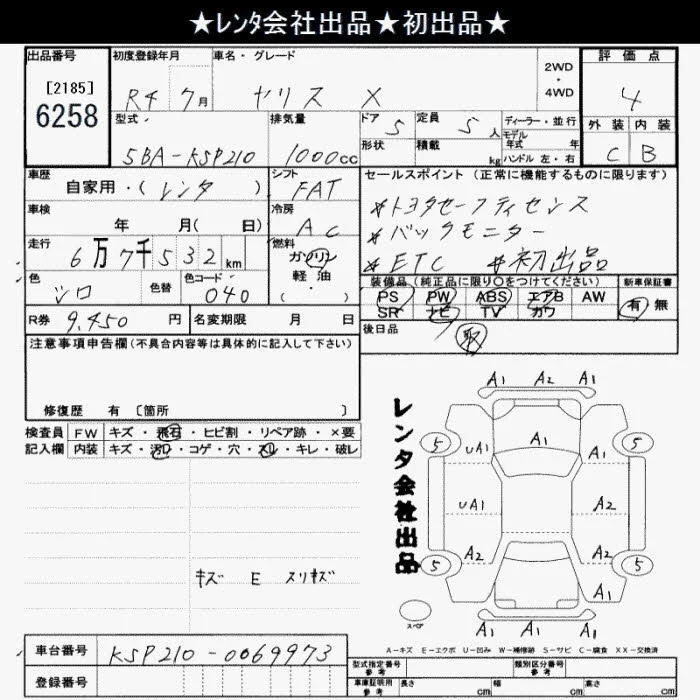 ★レンタ会社出品★初出品★
出品番号 初度登録年月 車名・グレード 評価点
[2185] R4 7月 ヤリス X 2WD・4WD 4
6258
型式 排気量 ドア 5 定員 5人 ディーラー・並行 外装 内装
5BA-KSP210 1000cc 形状 積載 kg モデル年式 年 C B
ハンドル 左・右
車歴 シフト セールスポイント(正常に機能するものに限ります)
自家用・(レンタ) FAT *トヨタセーフティセンス
車検 年 月(日) 冷房 AC *バックモニター
走行 6万7千532km 燃料 ガソリン 軽油・ *ETC *初出品
色 シロ 色替 色コード 040 装備品(純正品に限り○をつけてください) 新車保証書
PS PW ABS エアB AW 有 無
SR ナビ TV カワ
R券 9,450円 名変期限 月 日 後日品 取
注意事項申告欄(不具合内容等は具体的に記入して下さい)
修復歴 有 [箇所 ]
検査員 FW キズ・飛石・ヒビ割・リペア跡・×要
記入欄 内装 キズ・汚レ・コゲ・穴・スレ・キレ・破レ
キズ E スリキズ
レンタ会社出品
A1 A2 A1
5 UA1 A1 5
UA1 A2
5 A2 A2 5
A1
A1 A1 A1
スペア
A-キズ E-エクボ U-凹み W-補修跡 S-サビ C-腐食 XX-交換済
車台番号 KSP210-0069973
型式指定番号 参考 類別区分番号 参考
登録番号 車庫証明用 参考 長さ cm 幅 cm 高さ cm